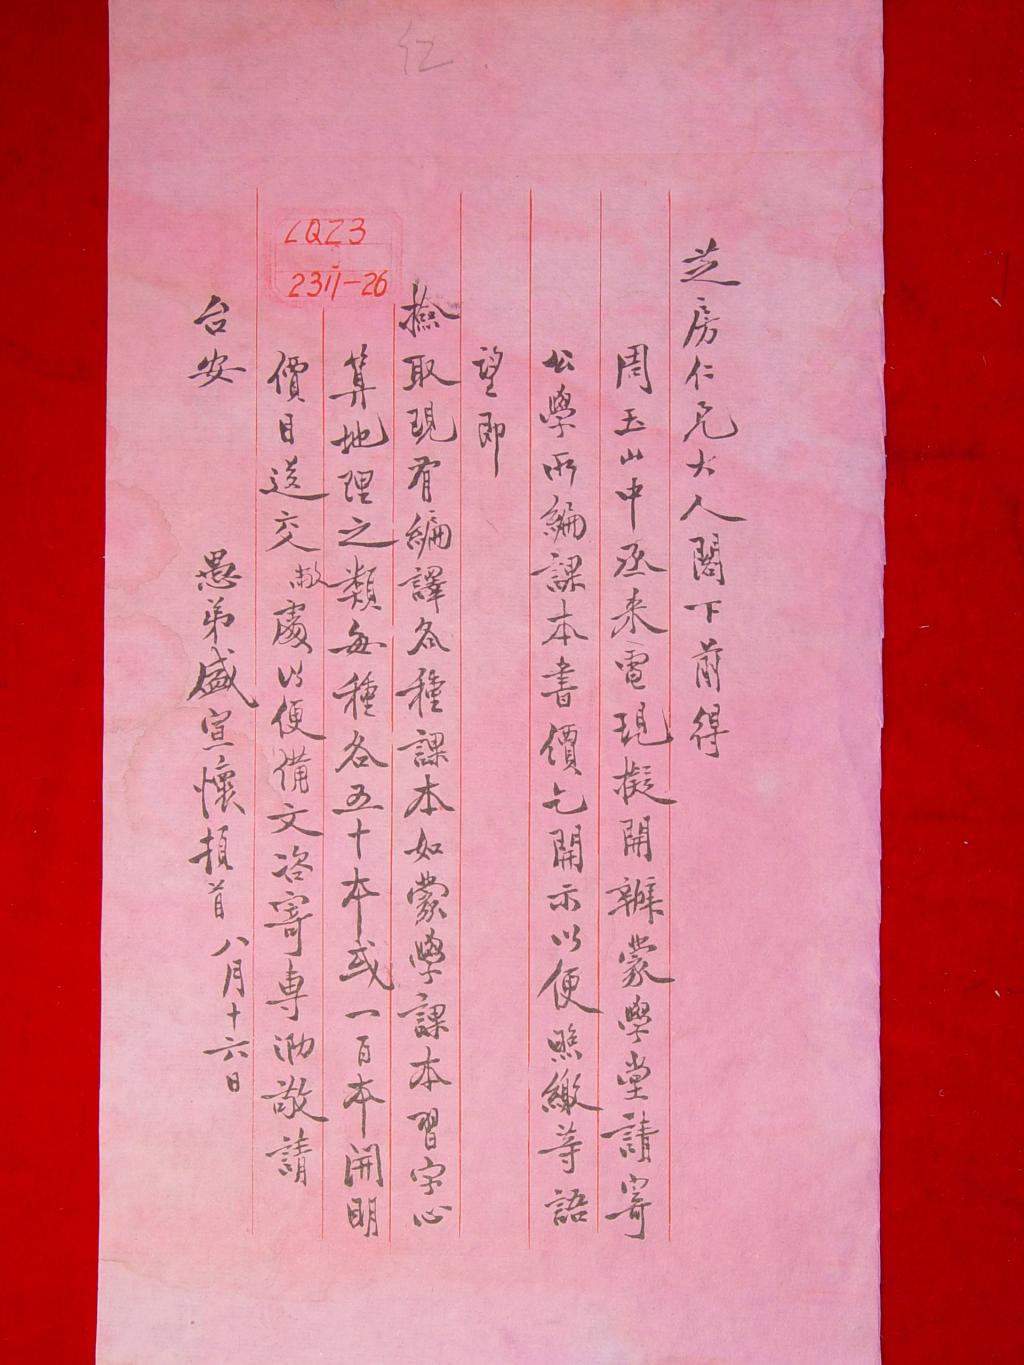 芝房仁兄大人閣下前得
周玉山中丞来電現擬開辦蒙學堂請寄
公學所編課本書價乞開示以便照繳等語
望即
撿取現有編譯各種課本如蒙學課本習字心
算地理之類每種各五十本或一百本開明
價目送交敝處以便備文咨寄專泐敬請
台安
愚弟盛宣懷頓首 八月十六日
LQZ3
2311-26
仁